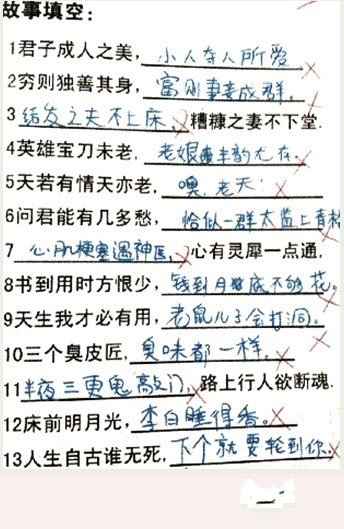 故事填空：
1君子成人之美，小人夺人所爱。
2穷则独善其身，富则妻妾成群。
3结发之夫不上床，糟糠之妻不下堂.
4英雄宝刀未老，老娘丰韵尤在。
5天若有情天亦老，噢，老天
6问君能有几多愁，恰似一群太监上青楼
7 心肌梗塞遇神医，心有灵犀一点通.
8书到用时方恨少，钱到月底不够花。
9天生我才必有用，老鼠儿子会打洞。
10三个臭皮匠，臭味都一样。
11半夜三更鬼敲门，路上行人欲断魂.
12床前明月光，李白睡得香。
13人生自古谁无死，下个就要轮到你.